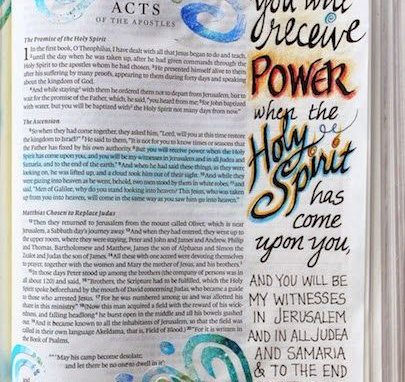 ACTS
OF THE APOSTLES
The Promise of the Holy Spirit
1 In the first book, O Theophilus, I have dealt with all that Jesus began to do and teach,
2 until the day when he was taken up, after he had given commands through the
Holy Spirit to the apostles whom he had chosen. 3 He presented himself alive to them
after his suffering by many proofs, appearing to them during forty days and speaking
about the kingdom of God.
4 And while staying with them he ordered them not to depart from Jerusalem, but to
wait for the promise of the Father, which, he said, "you heard from me; 5 for John baptized
with water, but you will be baptized with the Holy Spirit not many days from now."
The Ascension
6 So when they had come together, they asked him, "Lord, will you at this time restore
the kingdom to Israel?" 7 He said to them, "It is not for you to know times or seasons that
the Father has fixed by his own authority. 8 But you will receive power when the Holy
Spirit has come upon you, and you will be my witnesses in Jerusalem and in all Judea and
Samaria, and to the end of the earth." 9 And when he had said these things, as they were
looking on, he was lifted up, and a cloud took him out of their sight. 10 And while they
were gazing into heaven as he went, behold, two men stood by them in white robes, 11 and
said, "Men of Galilee, why do you stand looking into heaven? This Jesus, who was taken
up from you into heaven, will come in the same way as you saw him go into heaven."
Matthias Chosen to Replace Judas
12 Then they returned to Jerusalem from the mount called Olivet, which is near
Jerusalem, a Sabbath day's journey away. 13 And when they had entered, they went up to
the upper room, where they were staying, Peter and John and James and Andrew, Philip
and Thomas, Bartholomew and Matthew, James the son of Alphaeus and Simon the
Zealot and Judas the son of James. 14 All these with one accord were devoting themselves
to prayer, together with the women and Mary the mother of Jesus, and his brothers.
15 In those days Peter stood up among the brothers (the company of persons was in
all about 120) and said, 16 "Brothers, the Scripture had to be fulfilled, which the Holy
Spirit spoke beforehand by the mouth of David concerning Judas, who became a guide
to those who arrested Jesus. 17 For he was numbered among us and was allotted his
share in this ministry." 18 (Now this man acquired a field with the reward of his wick-
edness, and falling headlong he burst open in the middle and all his bowels gushed
out. 19 And it became known to all the inhabitants of Jerusalem, so that the field was
called in their own language Akeldama, that is, Field of Blood.) 20 "For it is written in
the Book of Psalms,
"'May his camp become desolate,
and let there be no one to dwell in it';
you will
receive
POWER
when the
Holy
Spirit
has
come
upon you,
AND YOU WILL BE
MY WITNESSES
IN JERUSALEM
AND IN ALL JUDEA
AND SAMARIA
& TO THE END